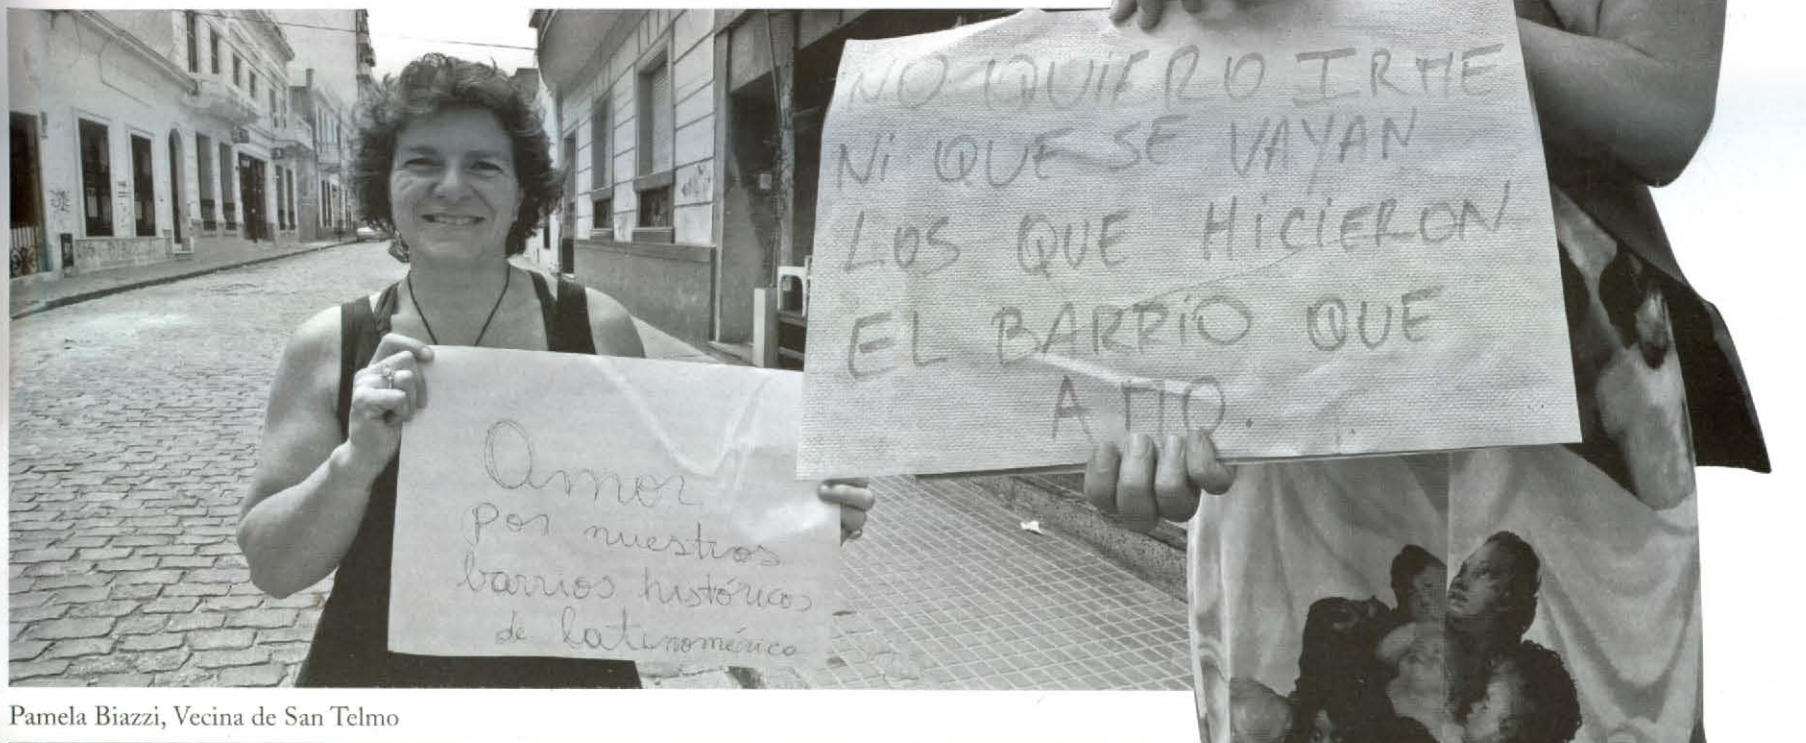 Amor
por nuestros
barrios históricos
de latinomérica
NO QUIERO IRME
Ni QUE SE VAYAN
LOS QUE HiCiERON
EL BARRiO QUE
AMO.
Pamela Biazzi, Vecina de San Telmo